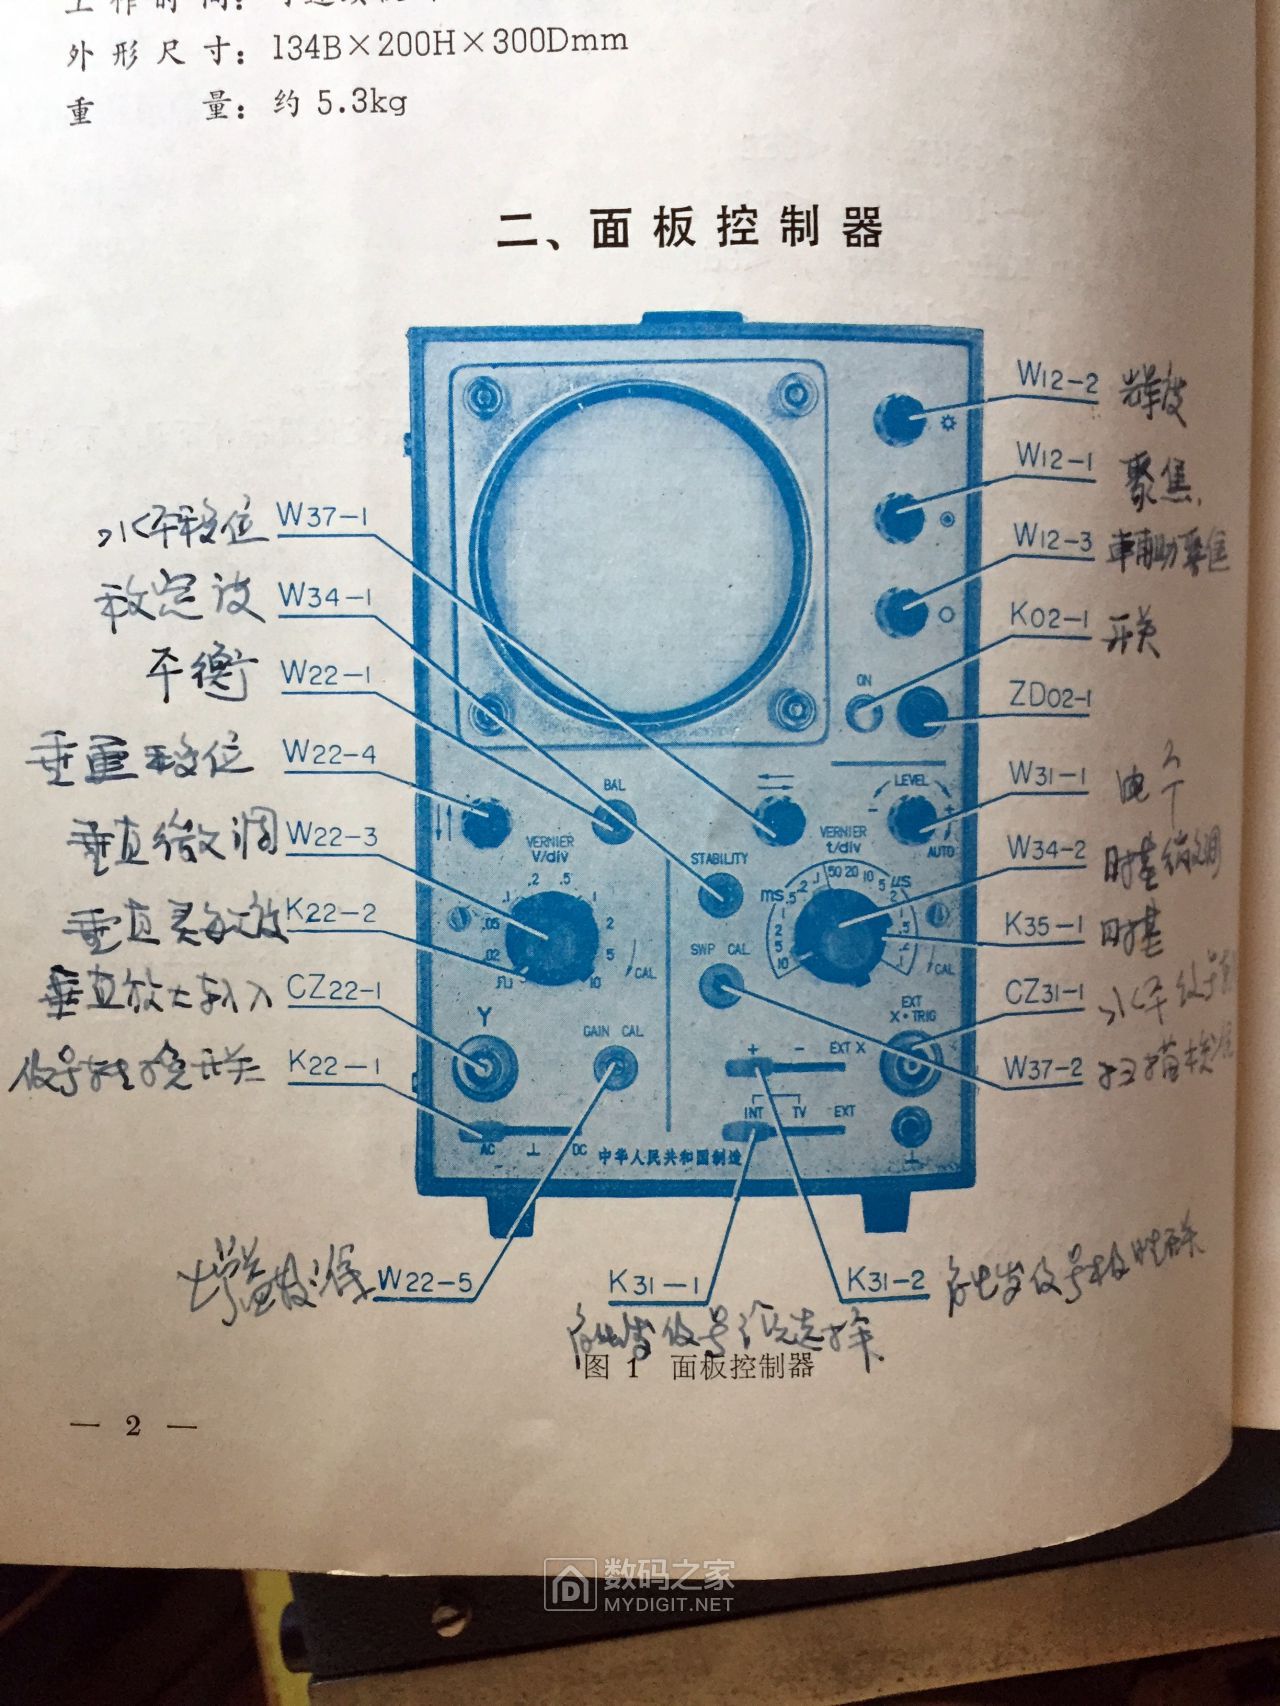 外形尺寸：134B×200H×300Dmm
重量：约 5.3kg
二、面板控制器
W12-2 辉度
W12-1 聚焦
W12-3 辅助聚焦
K02-1 开关
ZD02-1
W31-1 电平
W34-2 时基微调
K35-1 时基
CZ31-1 水平信号
W37-2 扫描校准
水平移位 W37-1
稳定度 W34-1
平衡 W22-1
W22-4
垂直微调 W22-3
垂直灵敏度 K22-2
垂直放大输入 CZ22-1
信号转换开关 K22-1
ON
LEVEL
- +
AUTO
BAL
VERNIER
V/div
.1 .2 .5 1 2 5 10
.05
.02
CAL
STABILITY
VERNIER
t/div
ms .5 .2 .1 50 20 10 5 μs
2 1 .5 .2 .1
1 2 5 10
CAL
SWP CAL
Y
GAIN CAL
EXT
X·TRIG
+ - EXT X
INT TV EXT
AC ⊥ DC
中华人民共和国制造
⊥
增益校准 W22-5
K31-1
K31-2
图 1 面板控制器
— 2 —
数码之家
MYDIGIT.NET